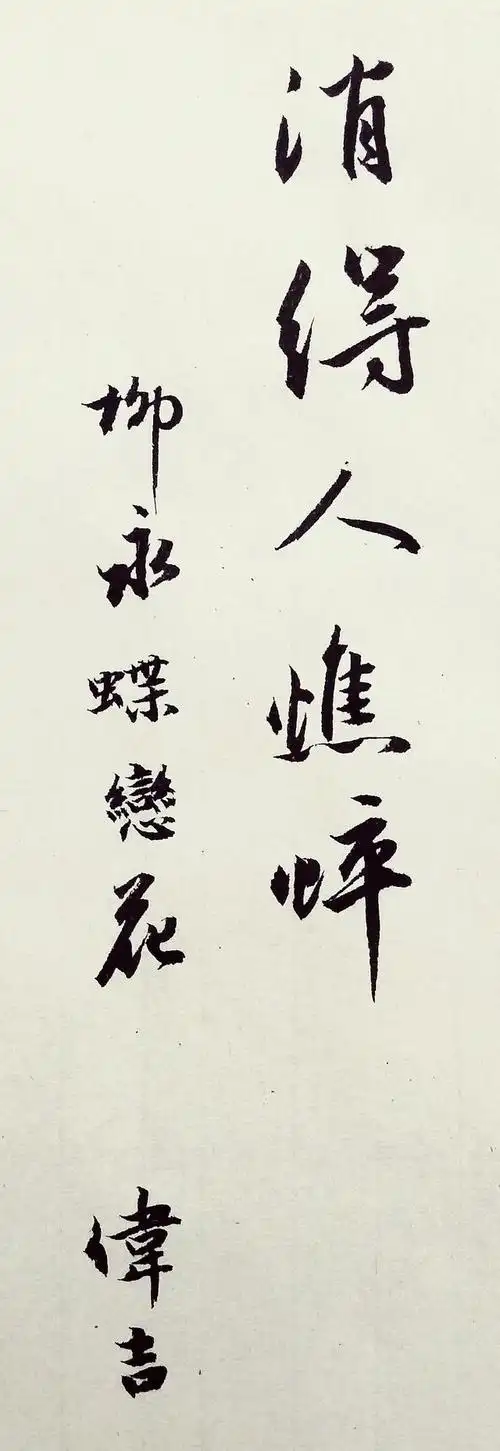 消得人憔悴
柳永蝶戀花 偉吉